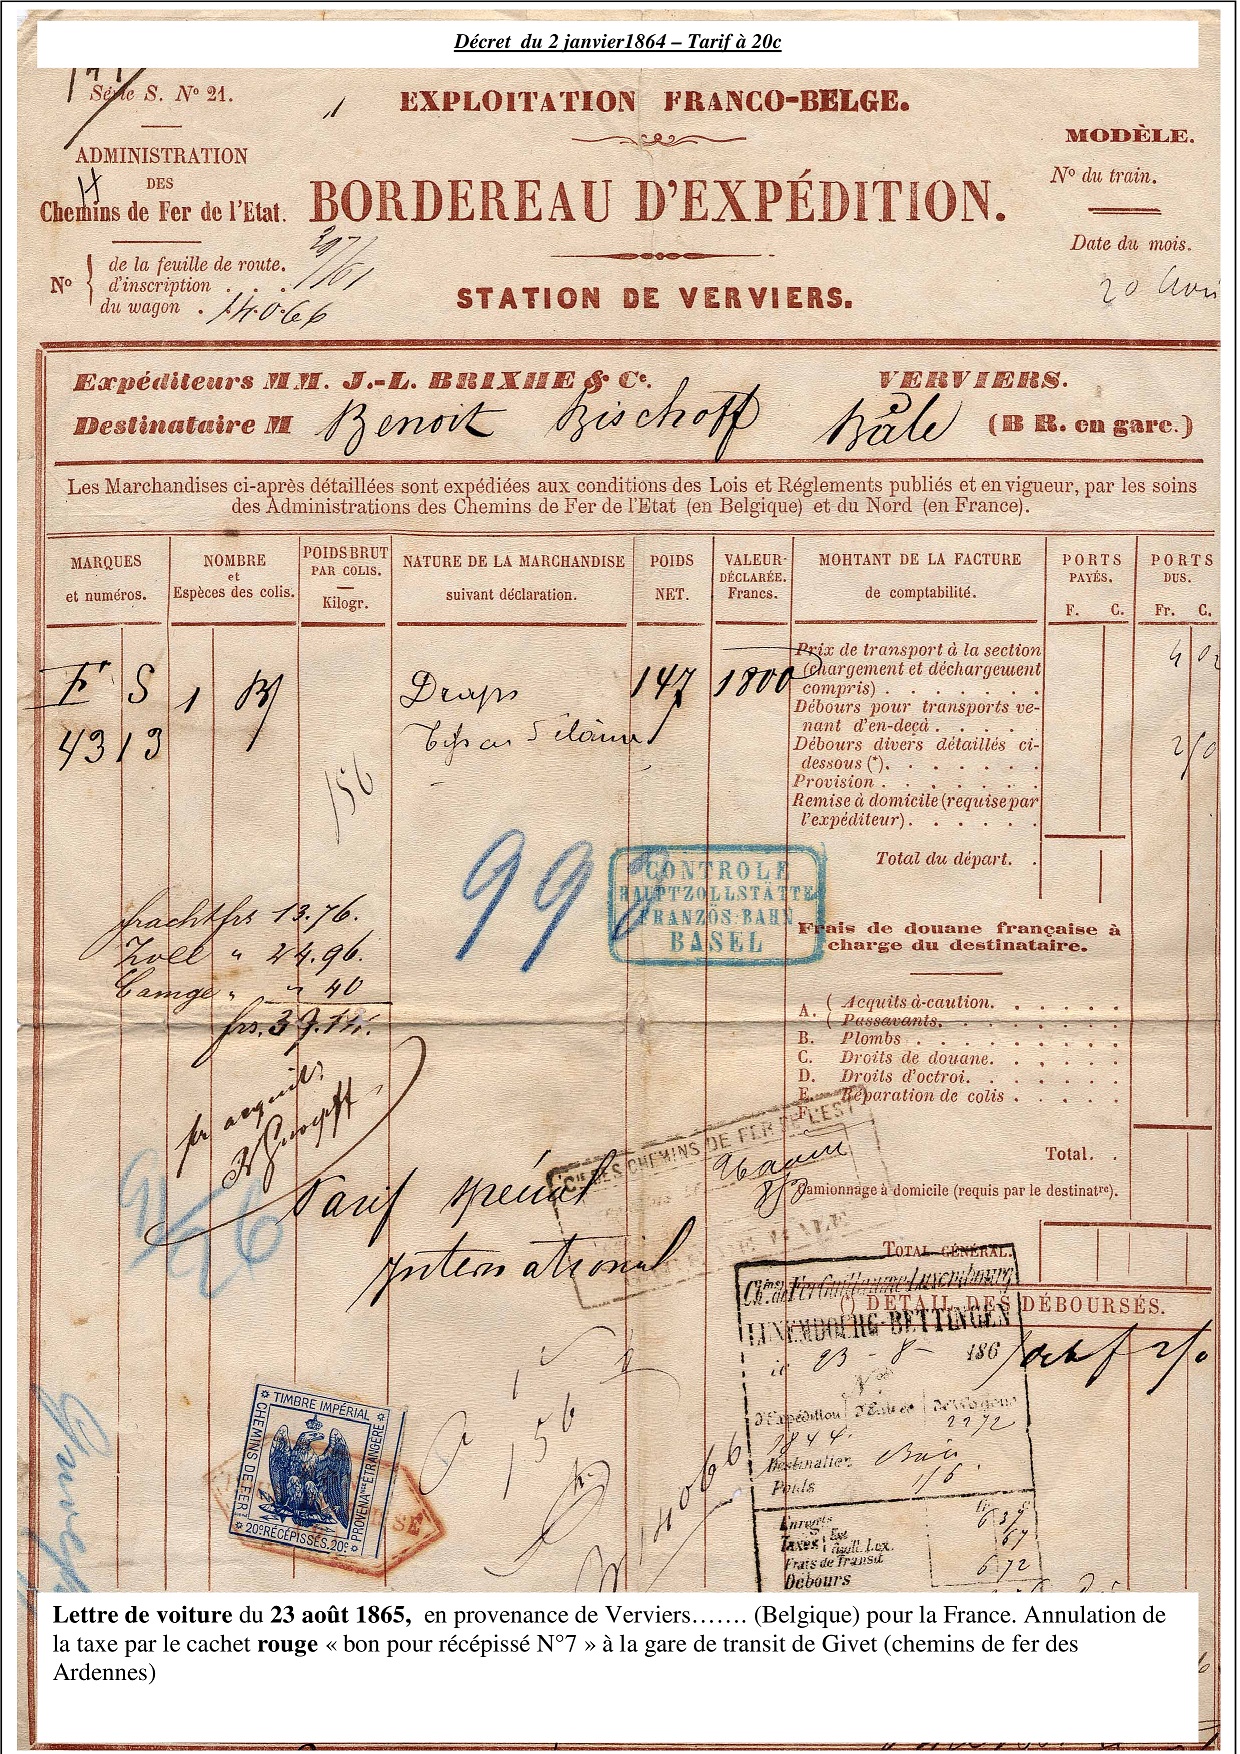 Décret du 2 janvier1864 – Tarif à 20c
Série S. Nº 21.
EXPLOITATION FRANCO-BELGE.
MODÈLE.
ADMINISTRATION
DES
Chemins de Fer de l'Etat.
Nº du train.
BORDEREAU D'EXPÉDITION.
Date du mois.
Nº
de la feuille de route.
d'inscription . . .
du wagon . 14066
STATION DE VERVIERS.
20
Expéditeurs MM. J.-L. BRIXHE & Cº. VERVIERS.
Destinataire M Benoit Bischoff Bâle (B R. en gare.)
Les Marchandises ci-après détaillées sont expédiées aux conditions des Lois et Réglements publiés et en vigueur, par les soins
des Administrations des Chemins de Fer de l'Etat (en Belgique) et du Nord (en France).
MARQUES
et numéros.
NOMBRE
et
Espèces des colis.
POIDS BRUT
PAR COLIS.
Kilogr.
NATURE DE LA MARCHANDISE
suivant déclaration.
POIDS
NET.
VALEUR-
DÉCLARÉE.
Francs.
MOHTANT DE LA FACTURE
de comptabilité.
PORTS
PAYÉS.
F. C.
PORTS
DUS.
Fr. C.
F S 1 B Draps 147 1800
4313
156
Prix de transport à la section
(chargement et déchargement
compris) . . . . . . .
Débours pour transports ve-
nant d'en-deçà . . . .
Débours divers détaillés ci-
dessous (*). . . . . . .
Provision . . . . . . .
Remise à domicile (requise par
l'expéditeur). . . . . .
Total du départ. .
998
CONTROLE
HAUPTZOLLSTÄTTE
FRANZÖS: BAHN
BASEL
Frais de douane française à
charge du destinataire.
frachtfrs 13.76.
Zoll " 24.96.
Camge " " 40
frs.
A. ( Acquits à-caution. . . . . .
( Passavants. . . . . . . . .
B. Plombs . . . . . . . . . .
C. Droits de douane. . . . . .
D. Droits d'octroi. . . . . . .
E. Réparation de colis . . . . .
F.
pr acquit
Total. .
Cie DES CHEMINS DE FER DE L'EST
Camionnage à domicile (requis par le destinatre).
Tarif spécial
international
TOTAL GÉNÉRAL.
(*) DÉTAIL DES DÉBOURSÉS.
Ch.ins de Fer Guillaume-Luxembourg
LUXEMBOURG-BETTINGEN
le 23 - 8 - 186
Nos
d'Expédition d'Entrée de Wagon
1844. 2272
Destinatier. Bâle
Poids
156
14066
Enregts
Taxes
Est
Guill. Lux.
Frais de Transit
Débours
6 72
TIMBRE IMPÉRIAL
CHEMINS DE FER
PROVENANCE ETRANGÈRE
20c RÉCÉPISSÉS. 20c
Lettre de voiture du 23 août 1865, en provenance de Verviers……. (Belgique) pour la France. Annulation de
la taxe par le cachet rouge « bon pour récépissé N°7 » à la gare de transit de Givet (chemins de fer des
Ardennes)